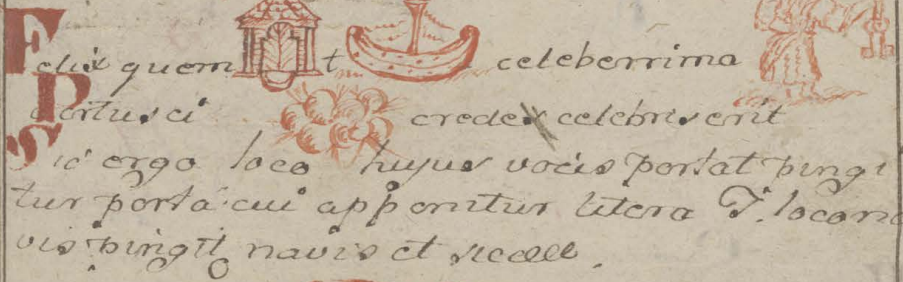 Felix quem t celeberrima
Portus ci credes celebris erit
Sic ergo loco hujus vocis portat pingi
tur porta cui apponitur litera T. loco na
vis pingit navis et sic